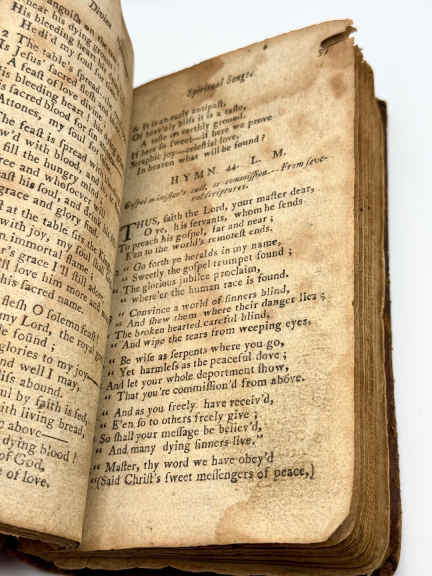 anguish on the
hear his dying groans
His bleeding hear
He di'd my soul
2 The table's spread
Is Jesus' sacred
A feast of love divin
his bleeding heart
s sacred blood for sin
Attones, my soul for
The feast is spread
w'd with blood, and
fill the hungry mind
rce and whosoever will
ast his soul, and drink his
grace and glory
at the table for the King
with joy, my soul
an immortal flame
r's grace I'll still adore
ll love him more and
his sacred name.
flesh O solemn feast!
my Lord, the royal
e found;
glories to my joy—
nd well I may,
ifs abound.
ul by faith is fed,
ith living bread,
g above—
dying blood?
of God,
e of love.
Divine
Spiritual Songs.
6 It is an early antipast,
Of heav'nly bliss it is a taste,
A taste on earthly ground.
If here so sweet—if here we prove
Seraphic joy—celestial love,
In heaven what will be found?
HYMN 44. L. M.
Gospel minister's call, or commission.—From seve-
ral scriptures.
THUS, saith the Lord, your master dear,
O ye, his servants, whom he sends
To preach his gospel, far and near;
E'en to the world's remotest ends.
" Go forth ye heralds in my name,
" Sweetly the gospel trumpet sound;
" The glorious jubilee proclaim,
" where'er the human race is found.
" Convince a world of sinners blind,
" And shew them where their danger lies;
The broken hearted careful blind,
" And wipe the tears from weeping eyes,
" Be wise as serpents where you go,
" Yet harmless as the peaceful dove;
" And let your whole deportment show,
" That you're commission'd from above.
" And as you freely have receiv'd,
" E'en so to others freely give;
So shall your message be believ'd,
" And many dying sinners live."
" Master, thy word we have obey'd
"(Said Christ's sweet messengers of peace,)